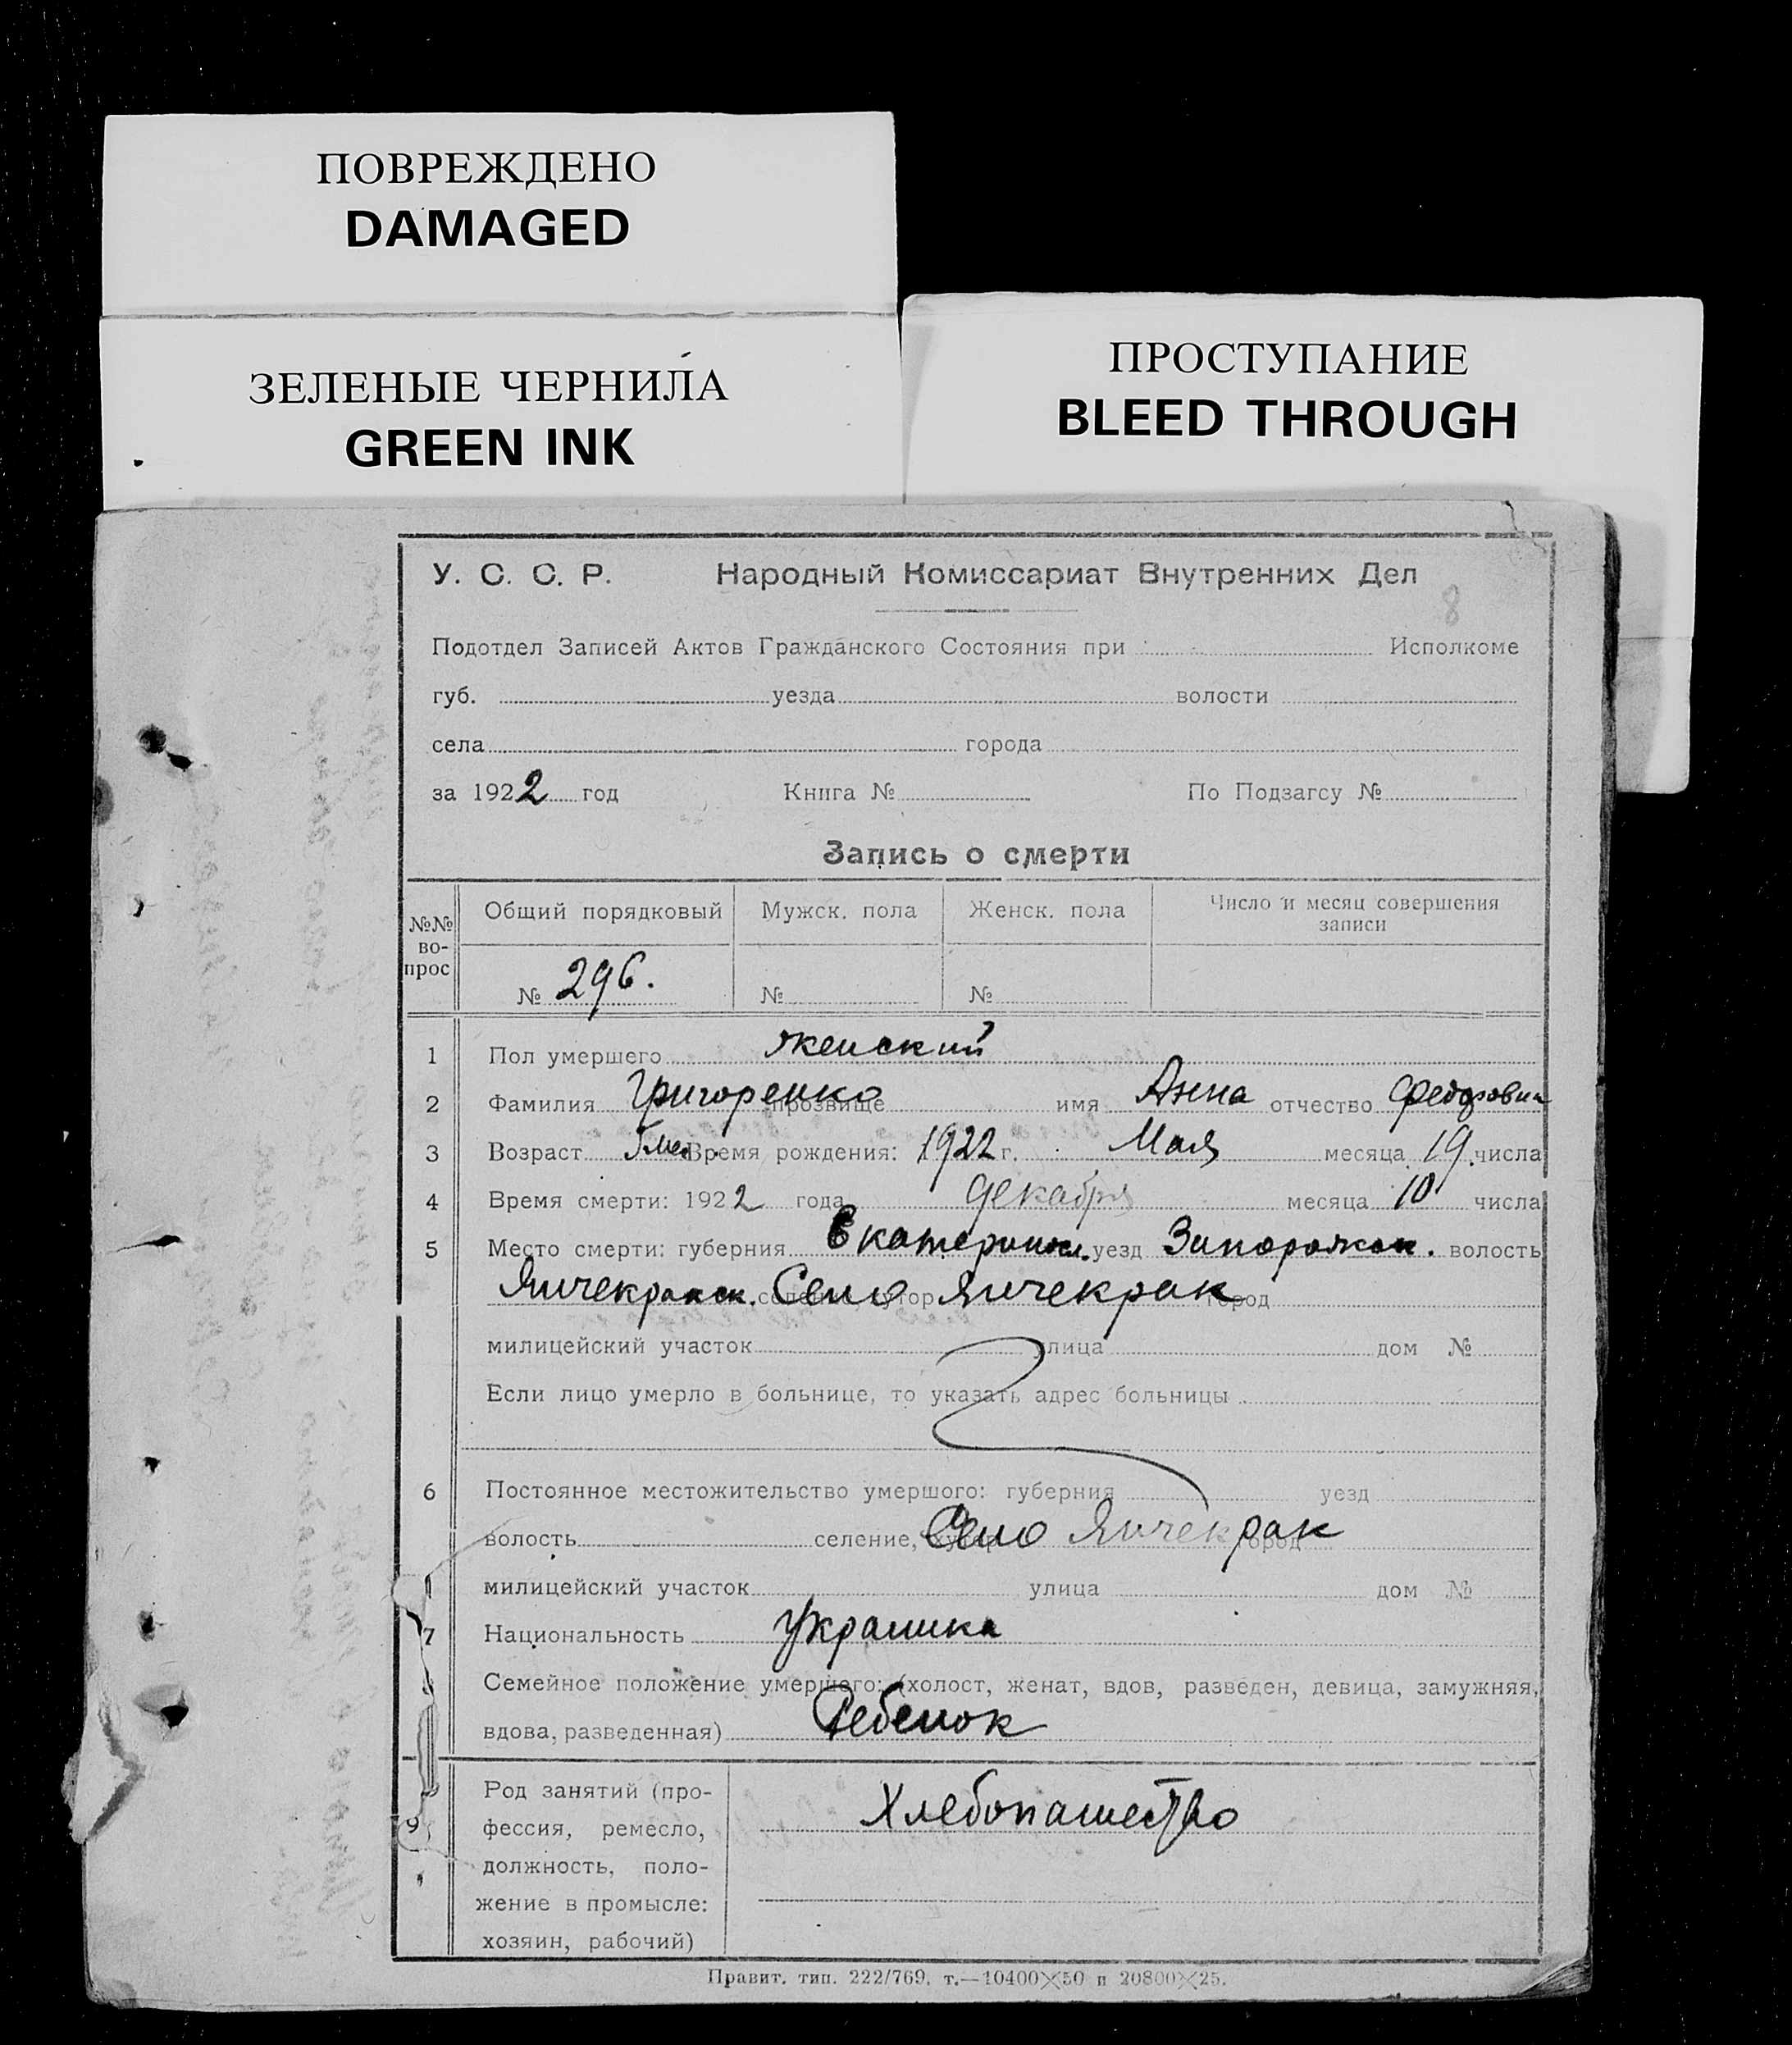 ПОВРЕЖДЕНО
DAMAGED
ЗЕЛЕНЫЕ ЧЕРНИЛА
GREEN INK
ПРОСТУПАНИЕ
BLEED THROUGH
У. С. С. Р. Народный Комиссариат Внутренних Дел
8
Подотдел Записей Актов Гражданского Состояния при Исполкоме
губ. уезда волости
села города
за 1922 год Книга № По Подзагсу №
Запись о смерти
№№ во- прос Общий порядковый Мужск. пола Женск. пола Число и месяц совершения записи
№ 296. № №
1 Пол умершего женский
2 Фамилия Григоренко прозвище имя Анна отчество Федоровна
3 Возраст Время рождения: 1922 г. Мая месяца 19 числа
4 Время смерти: 1922 года Декабря месяца 10 числа
5 Место смерти: губерния Екатеринол. уезд Запорожск. волость
Янчекракск. Село Янчекрак город
милицейский участок улица дом №
Если лицо умерло в больнице, то указать адрес больницы
6 Постоянное местожительство умершого: губерния уезд
волость селение, хутор Село Янчекрак город
милицейский участок улица дом №
7 Национальность украинка
Семейное положение умершего: (холост, женат, вдов, разведен, девица, замужняя,
вдова, разведенная) Ребенок
Род занятий (про-
9 фессия, ремесло, Хлебопашество
должность, поло-
жение в промысле:
хозяин, рабочий)
Правит. тип. 222/769. т.—10400×50 и 20800×25.